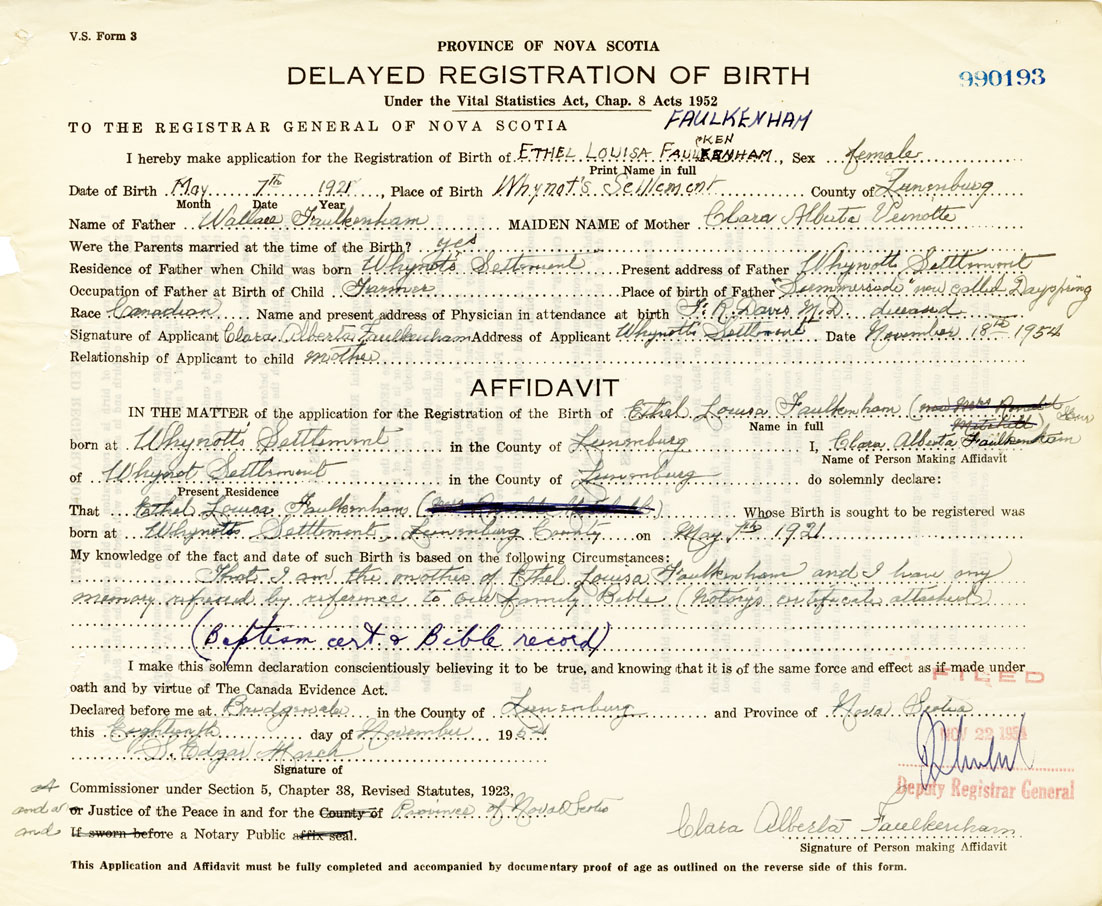 V.S. Form 3
PROVINCE OF NOVA SCOTIA
DELAYED REGISTRATION OF BIRTH
990193
Under the Vital Statistics Act, Chap. 8 Acts 1952
TO THE REGISTRAR GENERAL OF NOVA SCOTIA
FAULKENHAM
KEN
I hereby make application for the Registration of Birth of ETHEL LOUISA FAULKENHAM, Sex female
Print Name in full
Date of Birth May 7th 1921, Place of Birth Whynot's Settlement County of Lunenburg
Month Date Year
Name of Father Wallace Faulkenham MAIDEN NAME of Mother Clara Alberta Veinotte
Were the Parents married at the time of the Birth? yes
Residence of Father when Child was born Whynotts Settlment Present address of Father Whynotts Settlmont
Occupation of Father at Birth of Child Farmer Place of birth of Father "Summerside" now called Dayspring
Race Canadian Name and present address of Physician in attendance at birth F. R. Davis M.D. deceased
Signature of Applicant Clara Alberta Faulkenham Address of Applicant Whynotts Settlment Date November 18th 1954
Relationship of Applicant to child mother
AFFIDAVIT
IN THE MATTER of the application for the Registration of the Birth of Ethel Louisa Faulkenham (now Mrs Ronald Mitchell)
Name in full
born at Whynotts Settlment in the County of Lunenburg I, Clara Alberta Faulkenham
Name of Person Making Affidavit
of Whynot Settlement in the County of Lunenburg do solemnly declare:
Present Residence
That Ethel Louisa Faulkenham Whose Birth is sought to be registered was
born at Whynotts Settlment, Lunenburg County on May 7th 1921
My knowledge of the fact and date of such Birth is based on the following Circumstances:
That I am the mother of Ethel Louisa Faulkenham and I have my
memory refreshed by reference to our family Bible (Notorys certificate attached)
(Baptism cert & Bible record)
I make this solemn declaration conscientiously believing it to be true, and knowing that it is of the same force and effect as if made under
oath and by virtue of The Canada Evidence Act.
FILED
Declared before me at Bridgewater in the County of Lunenburg and Province of Nova Scotia
this Eighteenth day of November 1954
NOV 22 1954
S. Edgar March
Signature of
Deputy Registrar General
Commissioner under Section 5, Chapter 38, Revised Statutes, 1923,
and a or Justice of the Peace in and for the County of Province of Nova Scotia
and a If sworn before a Notary Public affix seal.
Clara Alberta Faulkenham
Signature of Person making Affidavit
This Application and Affidavit must be fully completed and accompanied by documentary proof of age as outlined on the reverse side of this form.